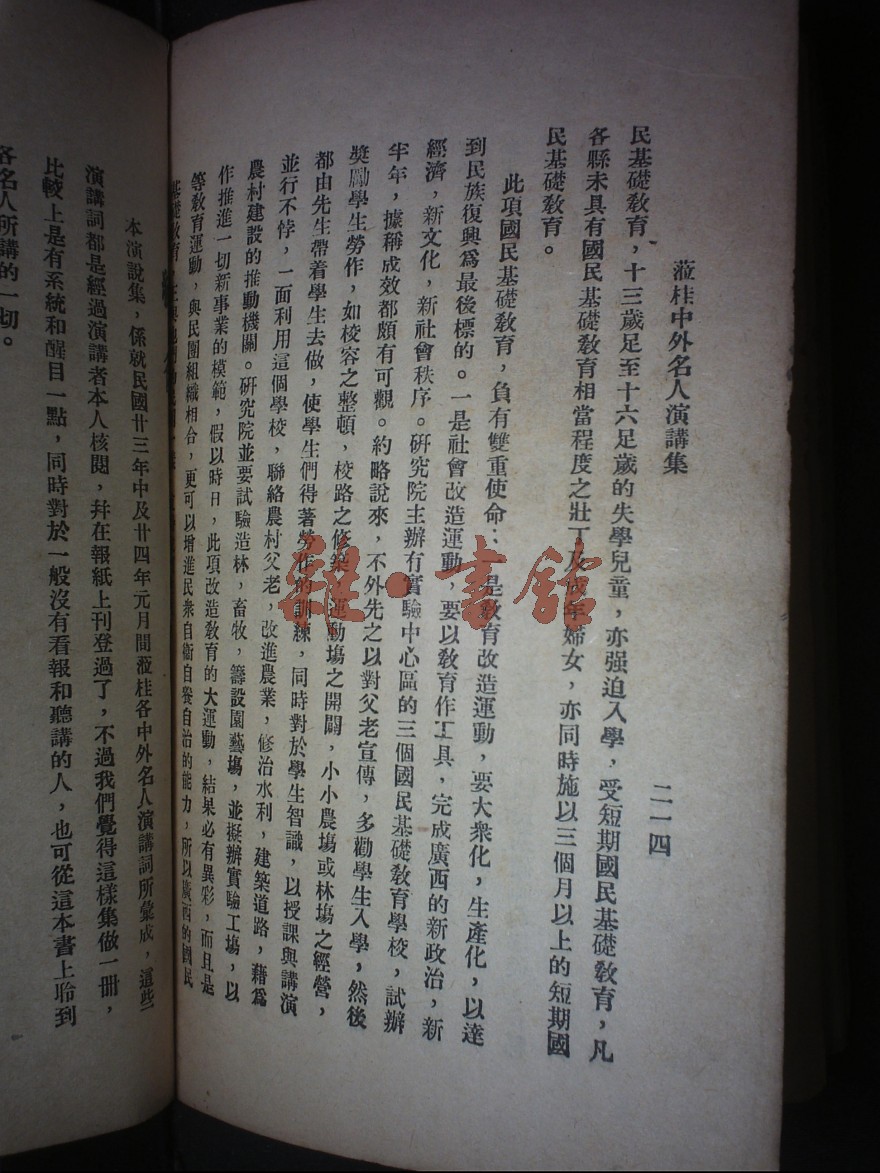 蒞桂中外名人演講集
二一四
民基礎敎育，十三歲足至十六足歲的失學兒童，亦强迫入學，受短期國民基礎敎育，凡
各縣未具有國民基礎敎育相當程度之壯丁及成年婦女，亦同時施以三個月以上的短期國
民基礎敎育。
此項國民基礎敎育，負有雙重使命：一是敎育改造運動，要大衆化，生產化，以達
到民族復興爲最後標的。一是社會改造運動，要以敎育作工具，完成廣西的新政治，新
經濟，新文化，新社會秩序。硏究院主辦有實驗中心區的三個國民基礎敎育學校，試辦
半年，據稱成效都頗有可觀。約略說來，不外先之以對父老宣傳，多勸學生入學，然後
奬勵學生勞作，如校容之整頓，校路之修築，運動塲之開闢，小小農塲或林塲之經營，
都由先生帶着學生去做，使學生們得著勞作的訓練，同時對於學生智識，以授課與講演
並行不悖，一面利用這個學校，聯絡農村父老，改進農業，修治水利，建築道路，藉爲
農村建設的推動機關。硏究院並要試驗造林，畜牧，籌設園藝塲，並擬辦實驗工塲，以
作推進一切新事業的模範，假以時日，此項改造敎育的大運動，結果必有異彩，而且是
等敎育運動，與民團組織相合，更可以增進民衆自衞自養自治的能力，所以廣西的國民
基礎敎育
本演說集，係就民國廿三年中及廿四年元月間蒞桂各中外名人演講詞所彙成，這些
演講詞都是經過演講者本人核閱，幷在報紙上刊登過了，不過我們覺得這樣集做一冊，
比較上是有系統和醒目一點，同時對於一般沒有看報和聽講的人，也可從這本書上聆到
各名人所講的一切。
雜·書館